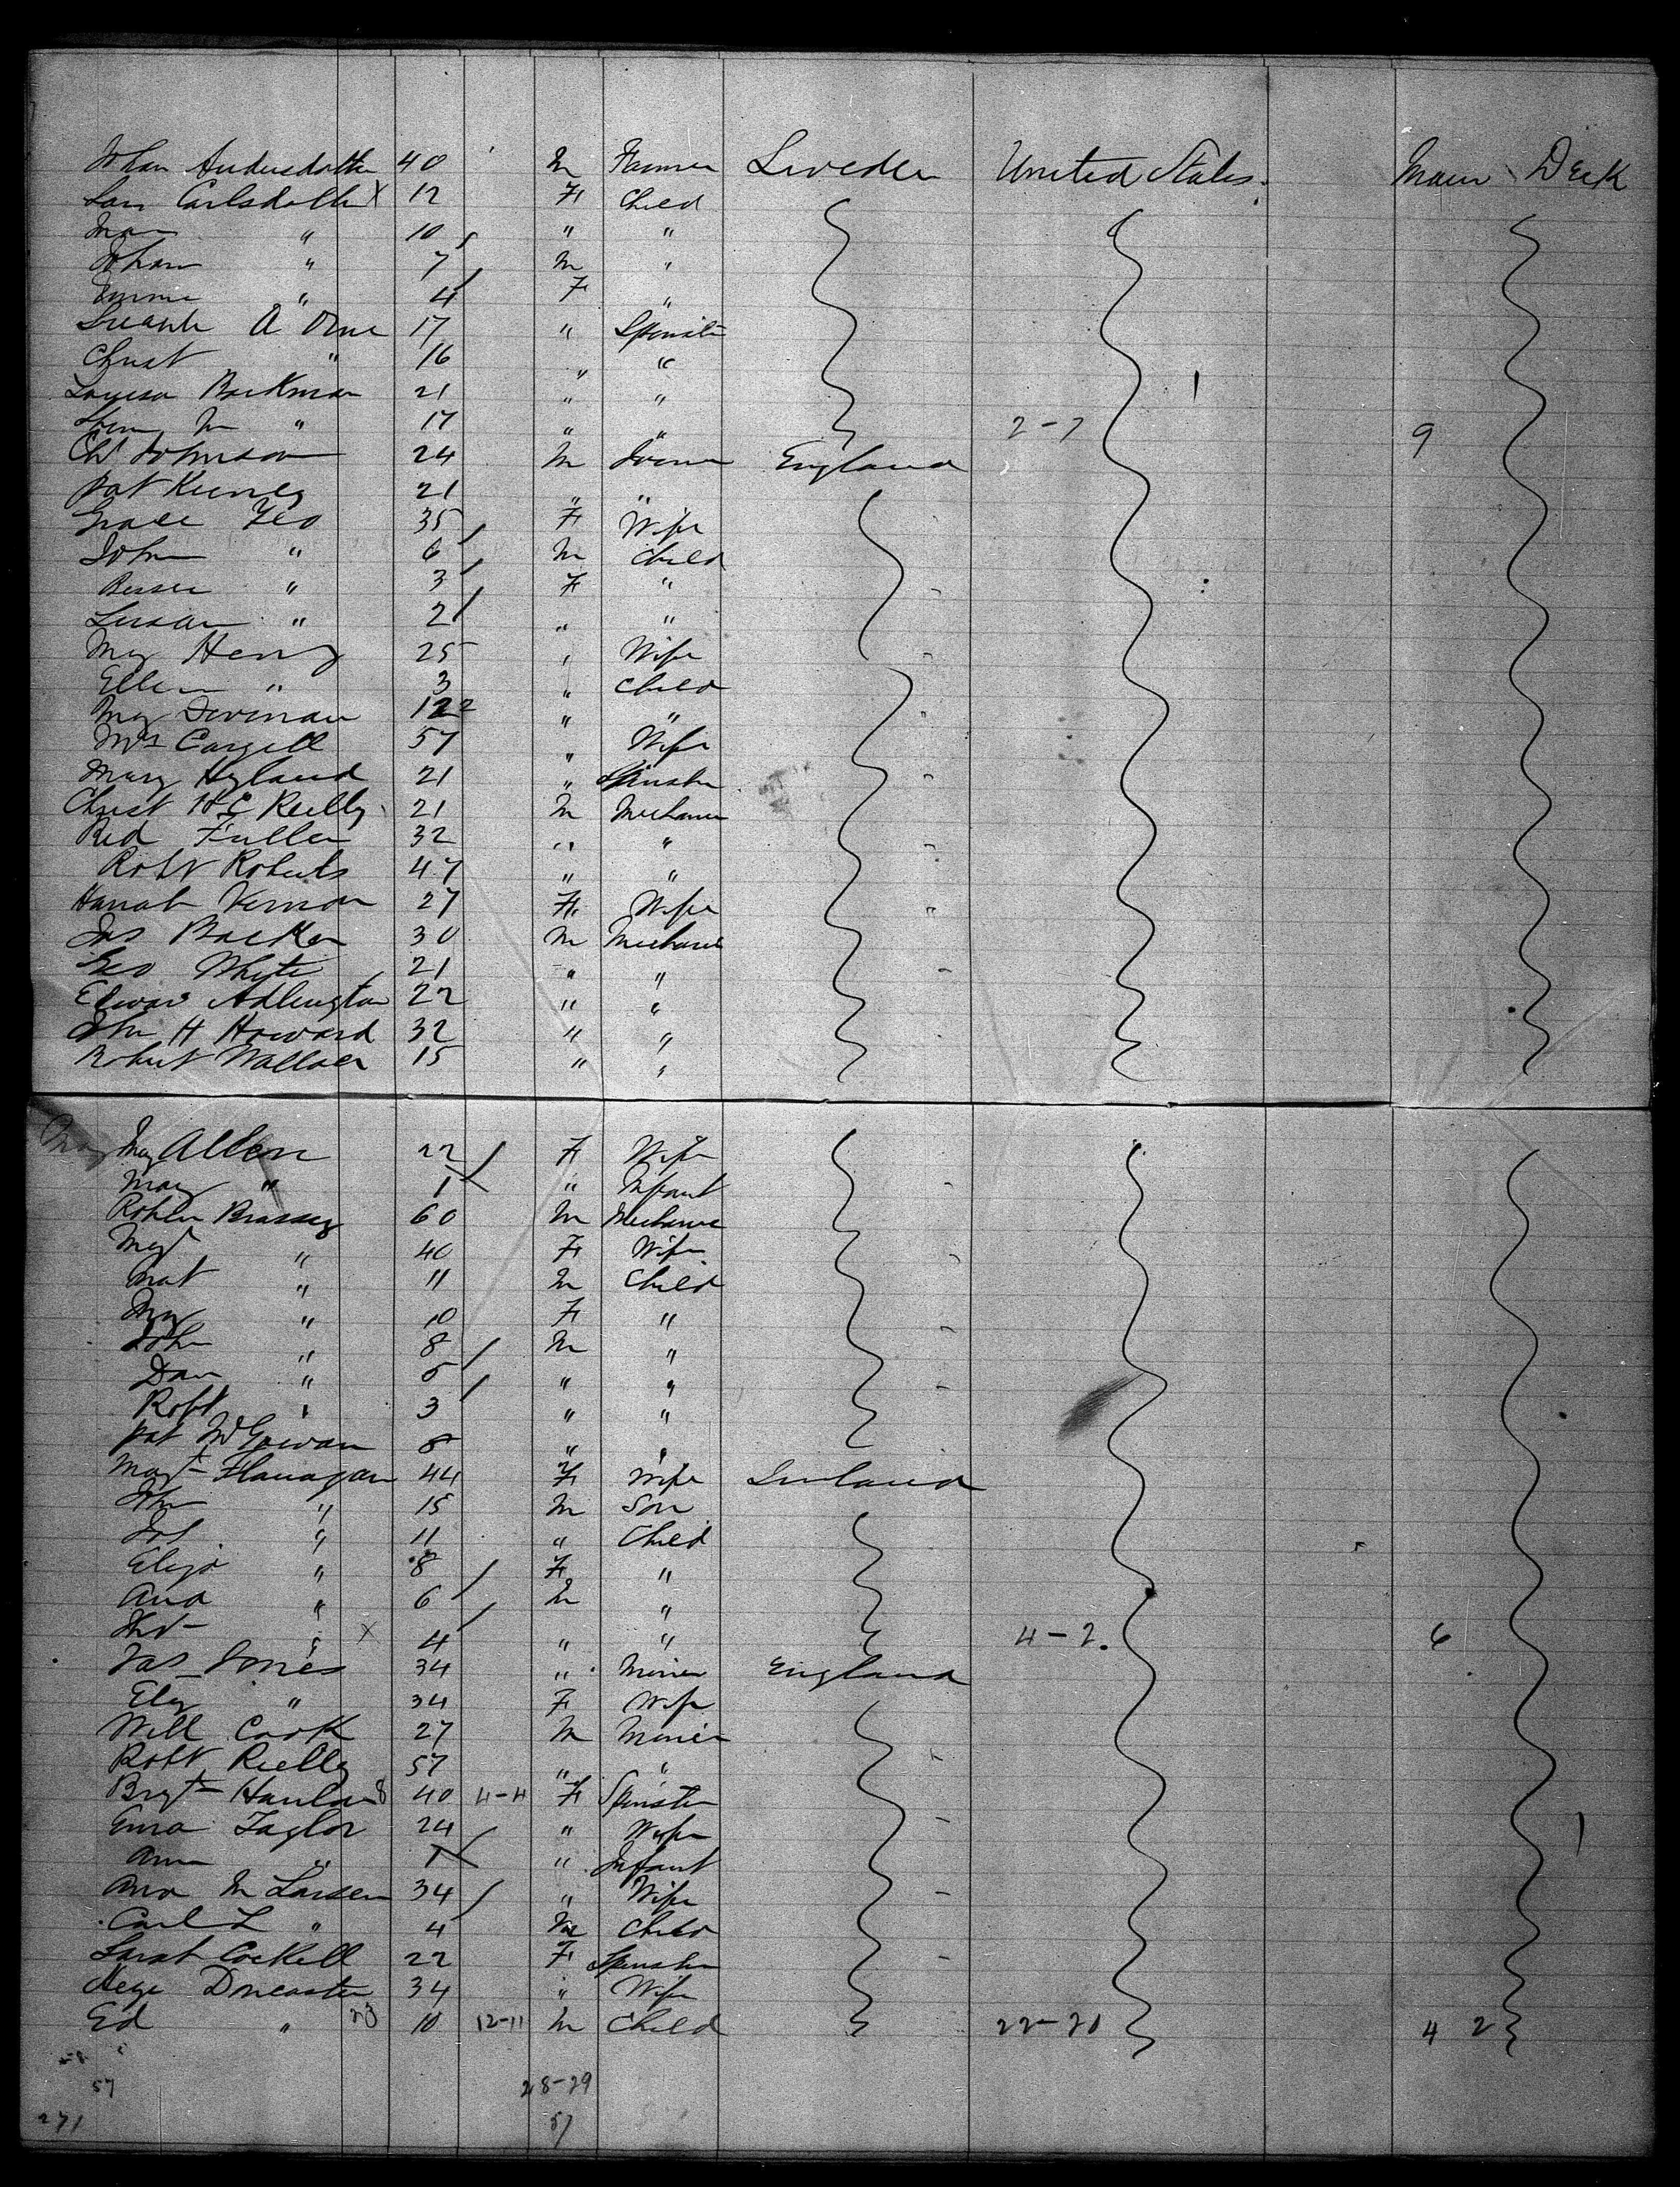 Johan Andersdotter 40 M Farmer Sweden United States Main Deck
Carlsdotter X 12 F Child
" 10 " "
Johan " 7 M "
Emma " 4 F "
A 17 " Spinster
Christ " 16 " "
Louisa Backman 21 " "
M " 17 " " 2-7 9
Johnson 24 M England
Pat Kenney 21 " "
Grace Yeo 35 F Wife
John " 6 M Child
Bessie " 3 F "
Susan " 2 " "
My Henry 25 " Wife
Ellen " 3 " Child
My 12 " "
Mrs Cargill 57 " Wife
Mary Hyland 21 " Spinster
Christ Reilly 21 M Mechanic
Fuller 32 " "
Robt Roberts 47 " "
Hanah Vernon 27 F Wife
Jas Backer 30 M Mechanic
Geo Whyte 21 " "
Edward Adlington 22 " "
John H Howard 32 " "
Robert Wallace 15 " "
My Allen 22 F Wife
Mary " 1 " Infant
Brassey 60 M Mechanic
Mgt " 40 F Wife
Mat " 11 M Child
My " 10 F "
John " 8 M "
Dan " 5 " "
Robt " 3 " "
Pat McGowan 8 " "
Magt Flanagan 44 F Wife Ireland
John " 15 M Son
" 11 " Child
Eliza " 8 F "
" 6 M "
" X 4 " " 4-2. 6
Jas Jones 34 " Miner England
Eliz " 34 F Wife
Will Cook 27 M Miner
Robt Reilly 57 " "
Brgt Hanlon 8 40 4-4 F Spinster
Emma Taylor 24 " Wife
Ann " 1 " Infant
Ana M Larsen 34 " Wife
Carl L " 4 M Child
Sarah Cockell 22 F Spinster
Doncaster 34 " Wife
Ed " 23 10 12-11 M Child 22-20 4 2
57 28-29
271 57